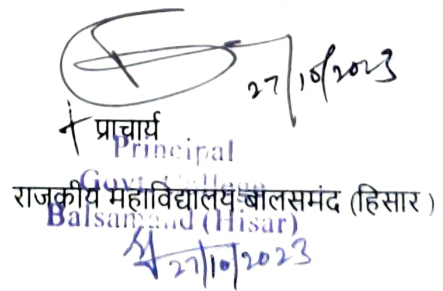 27/10/2023
प्राचार्य
Principal
Govt. College
राजकीय महाविद्यालय बालसमंद (हिसार )
Balsamand (Hisar)
27/10/2023